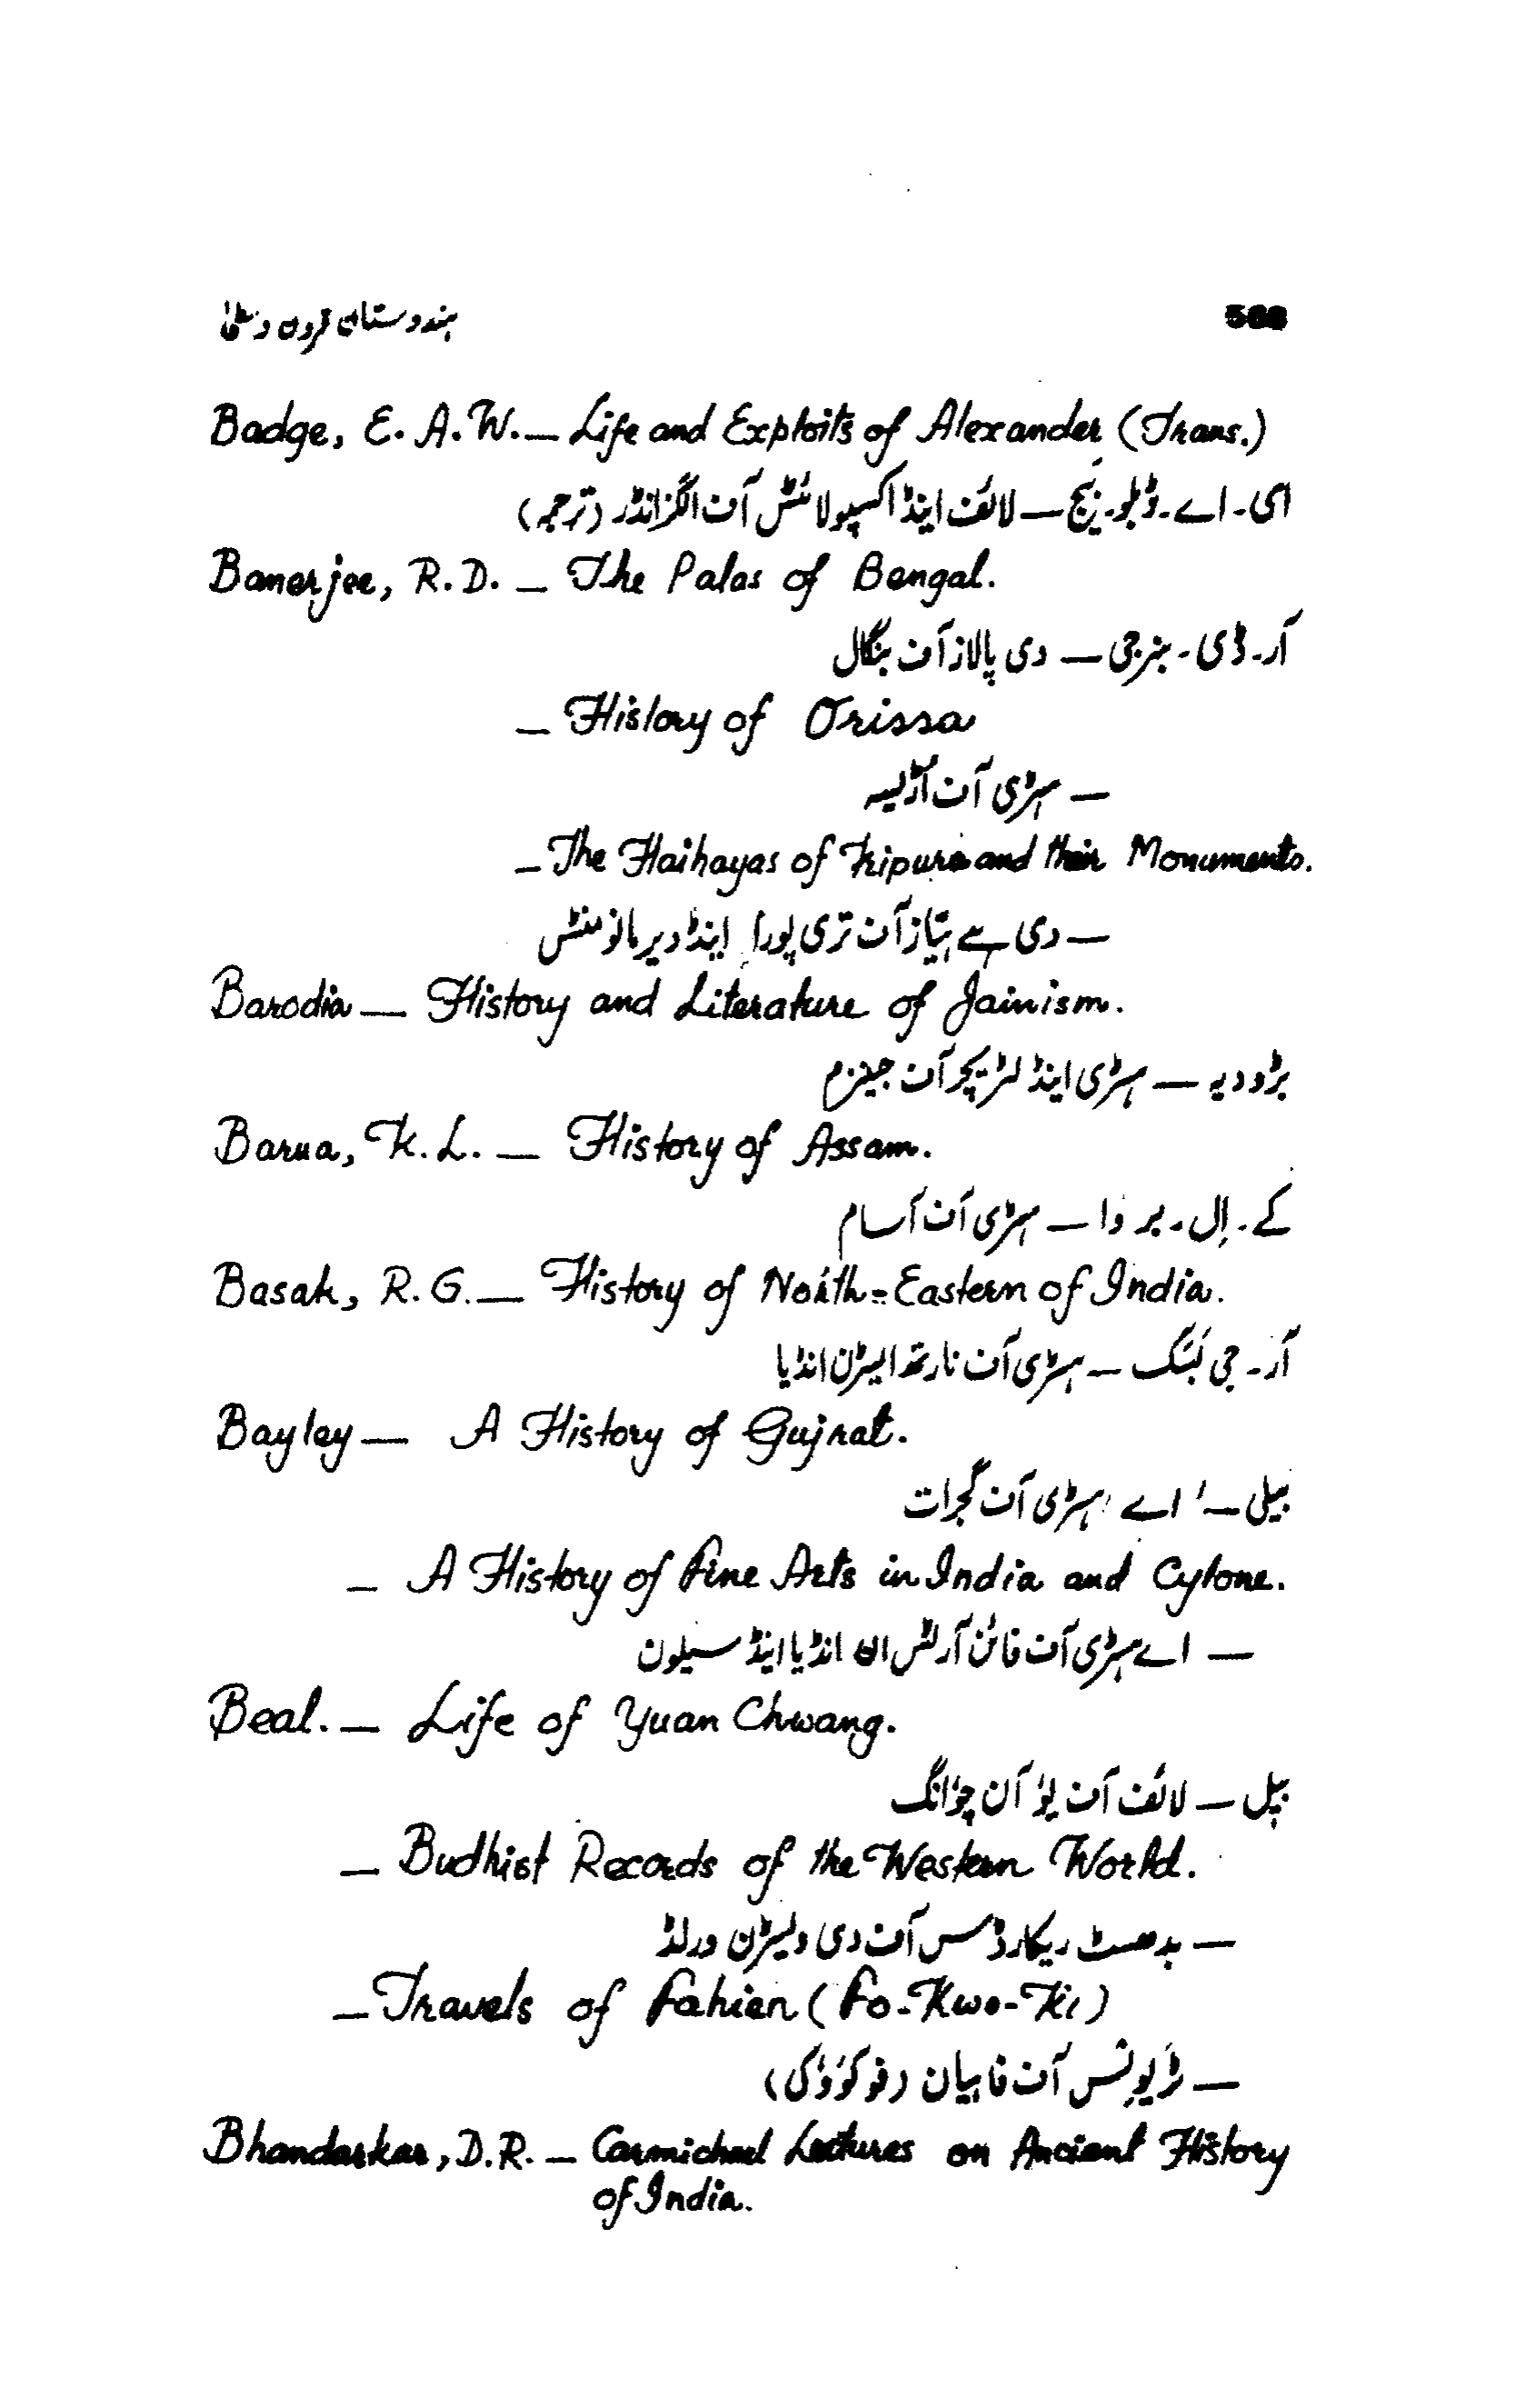 568 ہندوستان قرون وسطیٰ
Badge, E. A. W. — Life and Exploits of Alexander (Trans.)
ای۔ اے۔ ڈبلو۔ بیج — لائف اینڈ اکسپولائٹس آف الگزانڈر (ترجمہ)
Banerjee, R.D. — The Palas of Bengal.
آر۔ ڈی۔ بنرجی — دی پالاز آف بنگال
— History of Orissa
— ہسٹری آف اڑیسہ
— The Haihayas of Tripura and their Monuments.
— دی ہے ہیّاز آف تری پورا اینڈ دیر مانومنٹس
Barodia — History and Literature of Jainism.
بڑودیہ — ہسٹری اینڈ لٹریچر آف جینزم
Barua, K. L. — History of Assam.
کے۔ اِل۔ بروا — ہسٹری آف آسام
Basak, R. G. — History of North-Eastern of India.
آر۔ جی بَسَک — ہسٹری آف نارتھ ایسٹرن انڈیا
Bayley — A History of Gujrat.
بیلی — اے ہسٹری آف گجرات
— A History of Fine Arts in India and Cylone.
— اے ہسٹری آف فائن آرٹس ان انڈیا اینڈ سیلون
Beal. — Life of Yuan Chwang.
بیل — لائف آف یوآن چوانگ
— Budhist Records of the Western World.
— بدھسٹ ریکارڈس آف دی ویسٹرن ورلڈ
— Travels of Fahien (Fo-Kwo-Ki)
— ٹریولس آف فاہیان (فو کوو کی)
Bhandarkar, D.R. — Carmichael Lectures on Ancient History
of India.